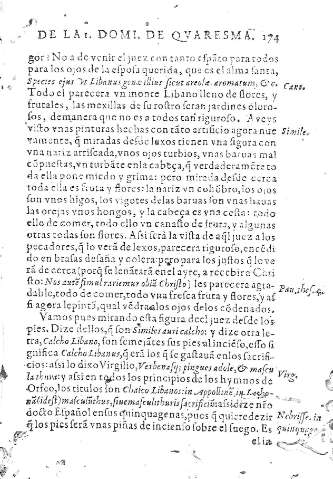 DE LA 1. DOMI. DE QVARESMA. 174
gor: No a de venir el juez con tanto espãto para todos
para los ojos de la esposa querida, que es el alma santa,
Species ejus vt Libanus genæ illius sicut areolæ aromatum, &c. Cant.
Todo el parecera vn monte Libano lleno de flores, y
frutales, las mexillas de su rostro seran jardines oloro-
sos, de manera que no es a todos tan riguroso. Aueys
visto vnas pinturas hechas con tãto artificio agora nue Simile.
vamente, q̃ miradas desde luxos tienen vna figura con
vna nariz arriscada, vnos ojos turbios, vnas baruas mal
cõpuestas, vn turbãte en la cabeça, q̃ verdaderamẽte to
da ella pone miedo y grima: pero mirada desde cerca
toda ella es fruta y flores: la nariz vn cohõbro, los ojos
son vnos higos, los vigotes de las baruas son vnas hauas
las orejas vnos hongos, y la cabeça es vna cesta: todo
ello de comer, todo ello vn canasto de fruta, y algunas
otras todas son flores. Assi será la vista de aq̃l juez a los
pecadores, q̃ lo verá de lexos, parecera riguroso, encẽdi
do en brasas de saña y colera: pero para los justos q̃ le ve
rá de cerca (porq̃ se leuãtará en el ayre, a recebir a Chri
sto: Nos autẽ simul rapiemur obiã Christo) les parecera agra- Pau. thes. 4.
dable, todo de comer, todo vna fresca fruta y flores, y assi
agora le pintã, qual vẽdra a los ojos de los cõdenados.
Vamos pues mirando esta figura del juez desde los
pies. Dize dellos, q̃ son Similes auricalcho: y dize otra le-
tra, Calcho Libano, son semejãtes sus pies al incienso, esso si
gnifica Calcho Libanus, q̃ era los q̃ se gastauã en los sacrifi-
cios: assi lo dixo Virgilio, Verbenasq; pingues adole, & mascu Virg.
la thura: y assi en todos los principios de los hymnos de
Orfeo, los titulos son
docto Español en sus quinquagenas, pues q̃ quiere dezir Nebrisse. in
q̃ los pies será vnas piñas de incienso sobre el fuego. Es quinquage.